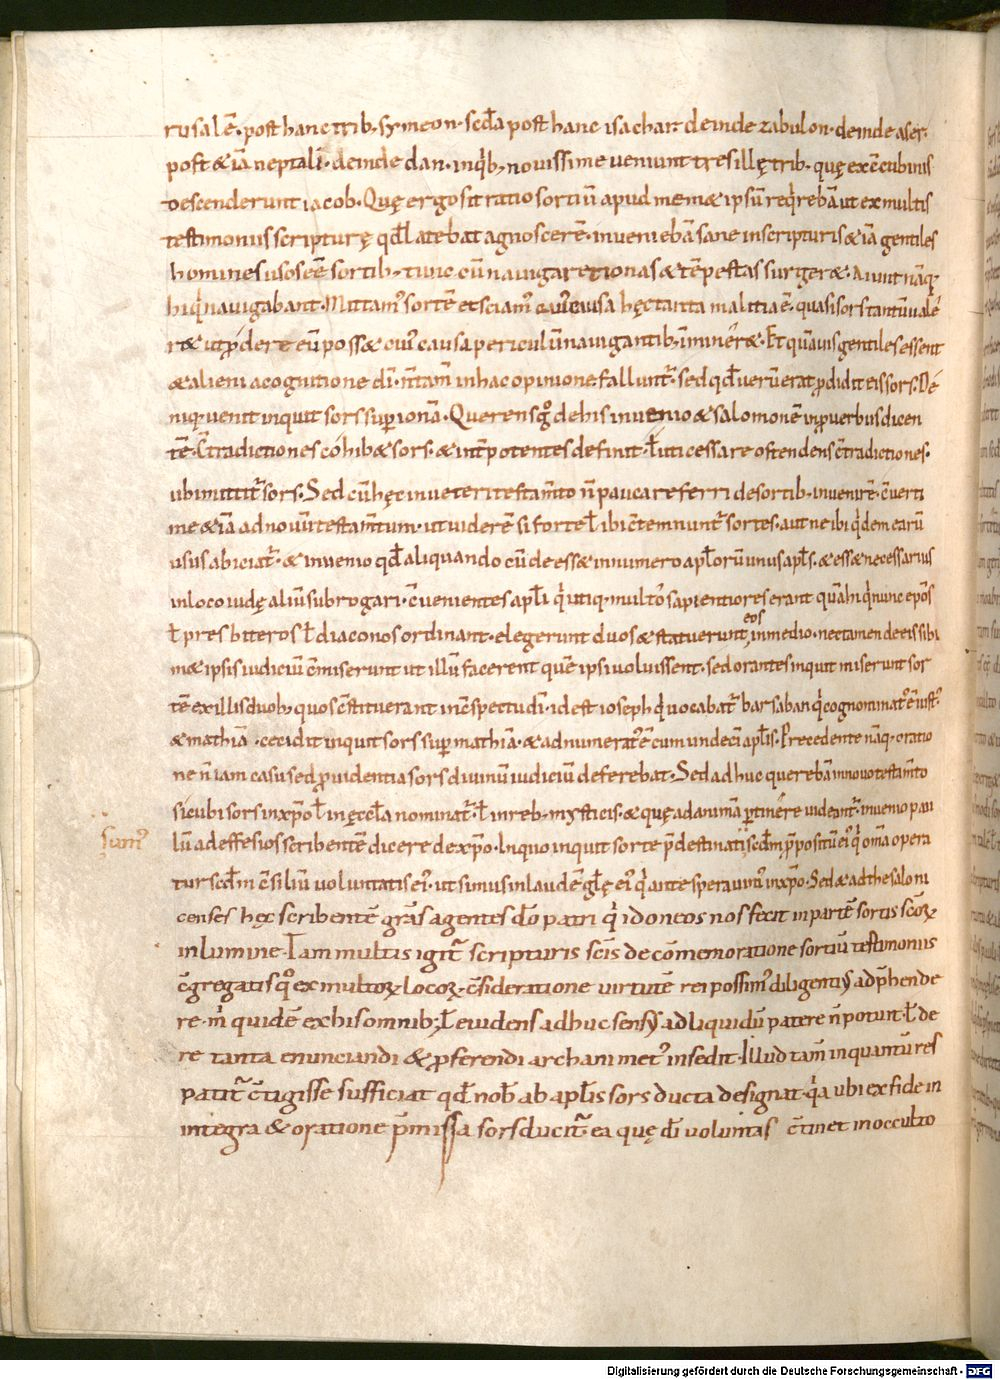 rusalē. post hanc trib; symeon. scďa post hanc isachar deinde zabulon. deinde aser.
post & iā neptalī. deinde dan. inqb; nouissime ueniunt tres illę trib. quę ex ēcubinis
descenderunt iacob. Quę ergo sit ratio sortiū apud mem& ipsū reqrebā ut ex multis
testimoniis scripturę qđ latebat agnoscerē. inueniebā sane in scripturis & iā gentiles
homines usos eē sortib; tunc cū nauigar& ionas & tēpestas surger&. Aiunt nāq.
hi q nauigabant. Mittam' sortē et sciam' cui' causa hęc tanta malitia ē. quasi sors tantū ualē
r& ut pder& eū poss& cui' causa periculū nauigantib; immīer&. Et quāuis gentiles essent
& alieni a cognitione dī. n̄ tam̄ in hac opinione fallunt̄. sed qđ uerū erat pdidit eis sors. Dē
niq uenit inquit sors sup ionā. Querens g° de his inuenio & salomonē in puerbiis dicen
tē. C̄tradictiones cohib& sors. & int̄ potentes definit. ł uti cessare ostendens c̄tradictiones.
ubi mittit̄ sors. Sed cū hęc in ueteri testam̄to n̄ pauca referri de sortib; inuenirē. c̄uerti
me & iā ad nouū testam̄tum. ut uiderē si forte ł ibi c̄temnunt̄ sortes. aut ne ibi qdem earū
usus abiciat̄. & inuenio qđ aliquando cū deess& in numero apłorū unus apłs. & ess& necessarius
in loco iudę aliū subrogari. c̄uenientes apłi q utiq. multo sapientiores erant quā hi q nunc ep̄os
ł presbiteros ł diaconos ordinant. elegerunt duos & statuerunt eos in medio. nec tamen de eis sibi
m& ipsis iudiciū c̄miserunt ut illū facerent quē ipsi uoluissent. sed orantes inquit miserunt sor
tē ex illis duob; quos c̄stituerant in c̄spectu dī. id est ioseph q uocabat̄ barsaban q cognominat' ē iust'.
& mathiā. cecidit inquit sors sup mathiā. & adnumerat' ē cum undecī apłis. Precedente nāq. oratio
ne n̄ iam casu sed puidentia sors diuinū iudiciū deferebat. Sed adhuc querebā in nouo testam̄to
sicubi sors in xp̄o ł in ęccła nominat̄. ł in reb; mysticis. & quę ad animā ptinēre uideant̄. inuenio pau
sum'
lū ad effesios scribentē dicere de xp̄o. In quo inquit sorte p̄destinati scđm p̄positū ei' q oma opera
tur scđm c̄siliū uoluntatis ei'. ut simus in laudē głę ei' q ante sperauim' in xp̄o. Sed & ad thesaloni
censes hęc scribentē gr̄as agentes dō patri q idoneos nos fecit in partē sortis scōꝝ
in lumine. Iam multis igit̄ scripturis scīs de cōmemoratione sortiū testimoniis
c̄gregatis q° ex multoꝝ locoꝝ c̄sideratione uirtutē rei possim' diligenti' adp̄hende
re. m quidē ex his omnib; ł euidens adhuc sens' ad liquidū patere n̄ potuit. ł de
re tanta enunciandi & pferendi archani met' insedit. Illud tam̄ in quantū res
patit̄ c̄tigisse sufficiat qđ nob ab apłis sors ducta designat. qa ubi ex fide in
integra & oratione p̄missa sors ducit̄. ea quę dī uoluntas c̄tinet in occulto
Digitalisierung gefördert durch die Deutsche Forschungsgemeinschaft - DFG